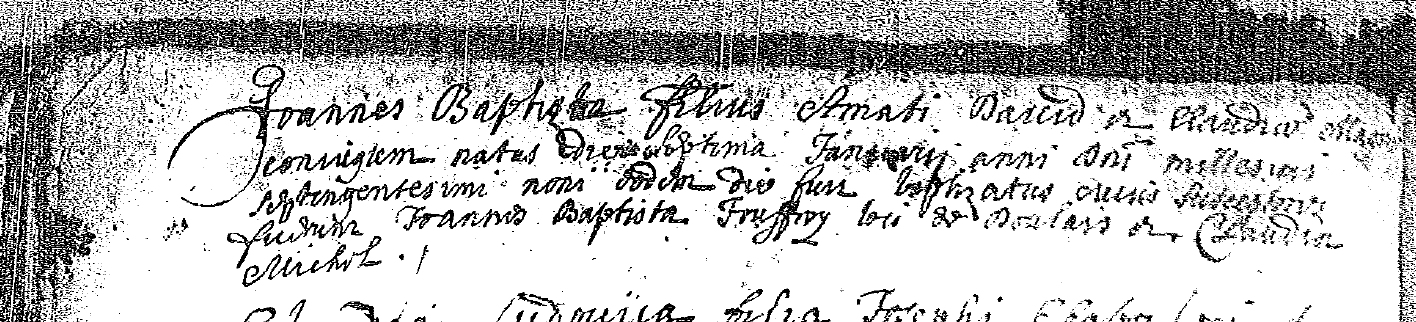 Joannes Baptista filius Amati David et Claudiae
conjugum natus die septima Januarii anni Dni millesimi
septingentesimi noni eodem die fuit baptizatus cuius susceptores
fuerunt Joannes Baptista Jouffroy loci de et Claudia
Michol.
Ludovica filia Josephi